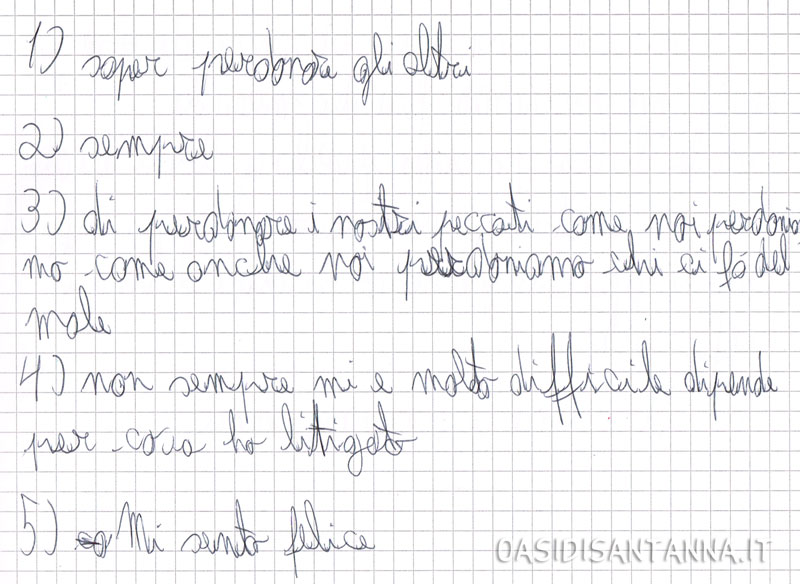 1) saper perdonare gli altri
2) sempre
3) di perdonare i nostri peccati come noi perdonia
mo come anche noi perdoniamo chi ci fá del
male
4) non sempre mi e molto difficile dipende
per cosa ho litigato
5) Mi sento felice
OASIDISANTANNA.IT